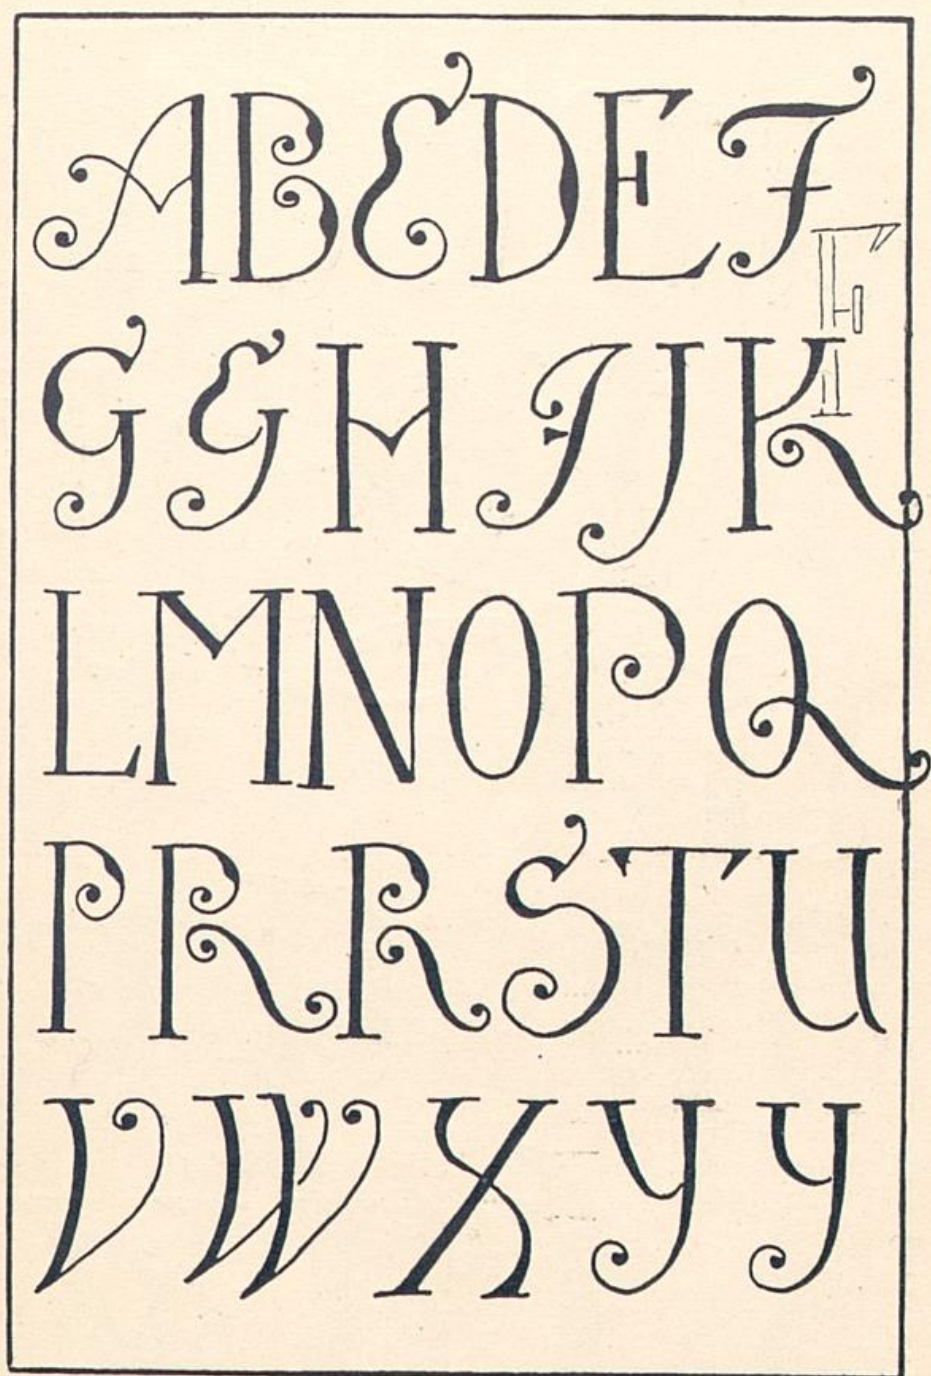 ABCDEF
F
GGHIJK
LMNOPQ
PRRSTU
VWXYY